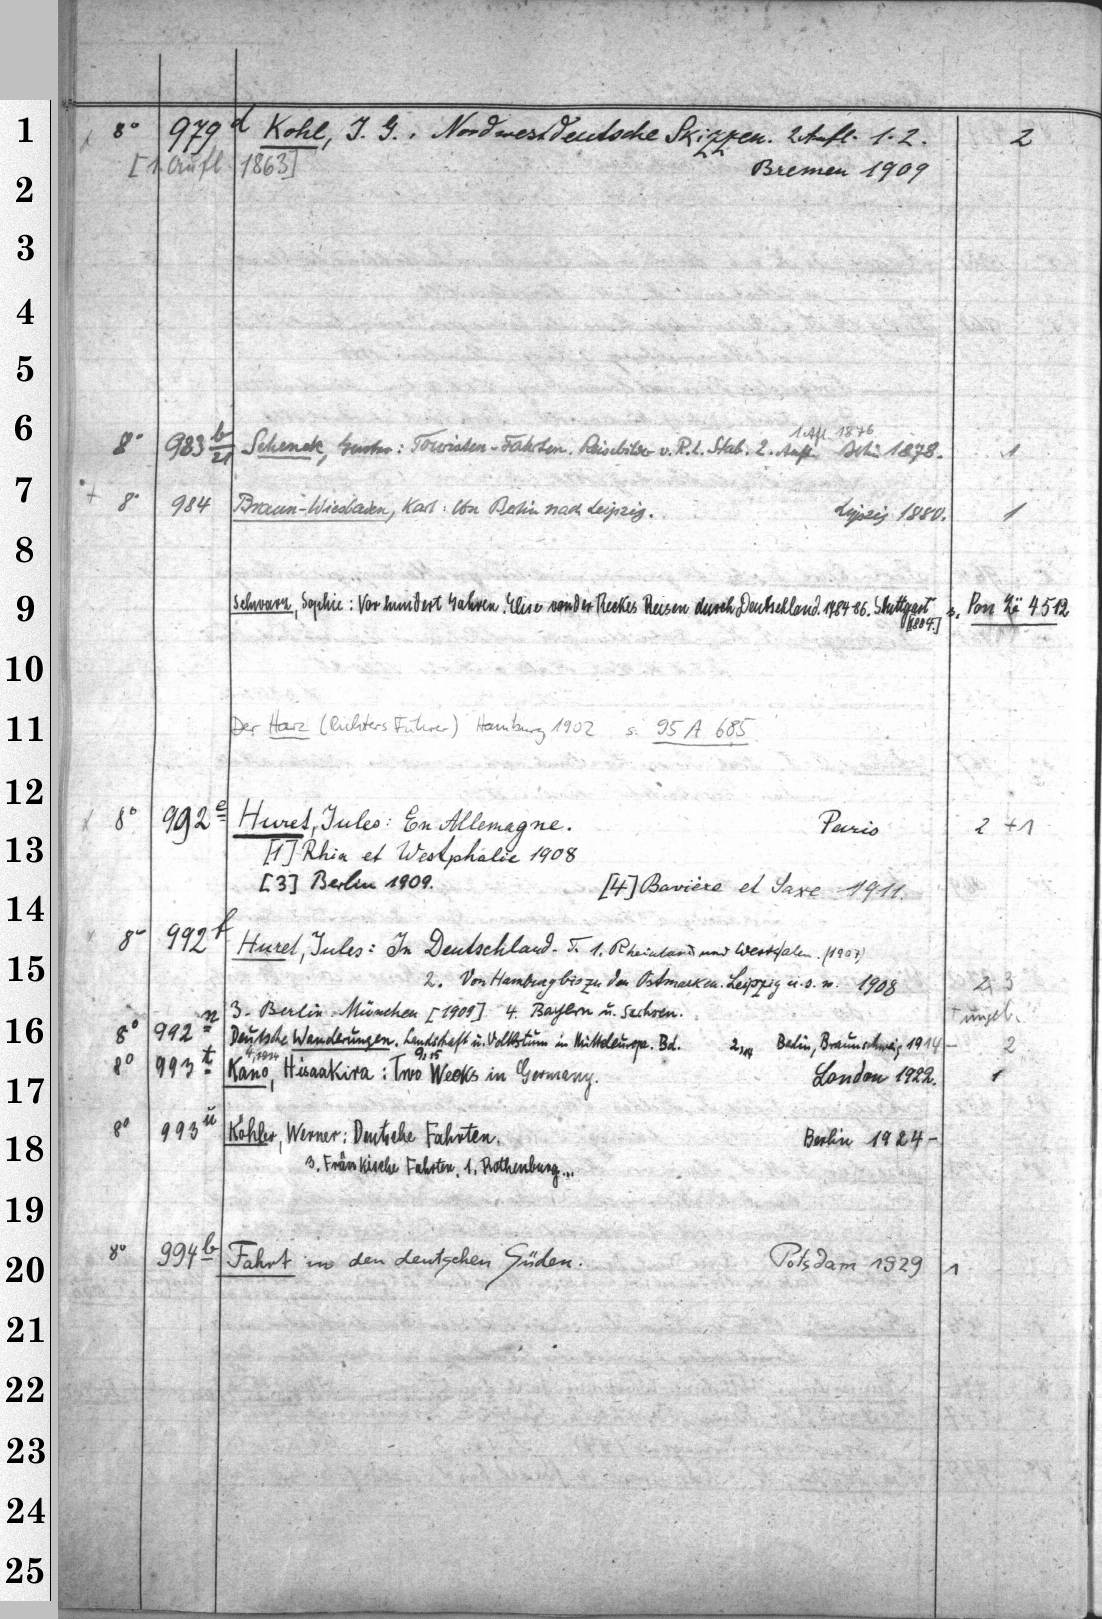 1 8° 979 d Kohl, J. G.: Nordwestdeutsche Skizzen. 2. Aufl. 1. 2. 2
[1. Aufl. 1863] Bremen 1909
2
3
4
5
6 1. Afl. 1876
8° 983 b/21 Schenck, : Touristen-Fahrten. Reisebilder v. R. L. Stab. 2. Aufl. Bln. 1878. 1
7 + 8° 984 Braun-Wiesbaden, Karl: Von Berlin nach Leipzig. Leipzig 1880. 1
8
9 Schwarz, Sophie: Vor hundert Jahren. Elise von der Reckes Reisen durch Deutschland. 1784-86. Stuttgart s. Pon Zö 4512
[1884.]
10
11 Der Harz (Richters Führer) Hamburg 1902 s. 95 A 685
12
8° 992 e Huret, Jules: En Allemagne. Paris 2 +1
13 [1] Rhin et Westphalie 1908
[3] Berlin 1909. [4] Bavière et Saxe 1911.
14
8° 992 f Huret, Jules: In Deutschland. T. 1. Rheinland und Westfalen. (1907)
15 2. Von Hamburg bis zu den Ostmarken. Leipzig u. s. w. 1908 2, 3
3. Berlin. München [1909] 4. Bayern u. Sachsen. ungeb.
16 8° 992 n Deutsche Wanderungen. Landschaft u. Volkstum in Mitteleuropa. Bd. 2,14 Berlin, Braunschweig 1914– 2
8° 993 t Kano, Hisaakira: Two Weeks in Germany. London 1922. 1
17
18 8° 993 u Köhler, Werner: Deutsche Fahrten. Berlin 1924–
3. Fränkische Fahrten. 1. Rothenburg...
19
20 8° 994 b Fahrt in den deutschen Süden. Potsdam 1929 1
21
22
23
24
25